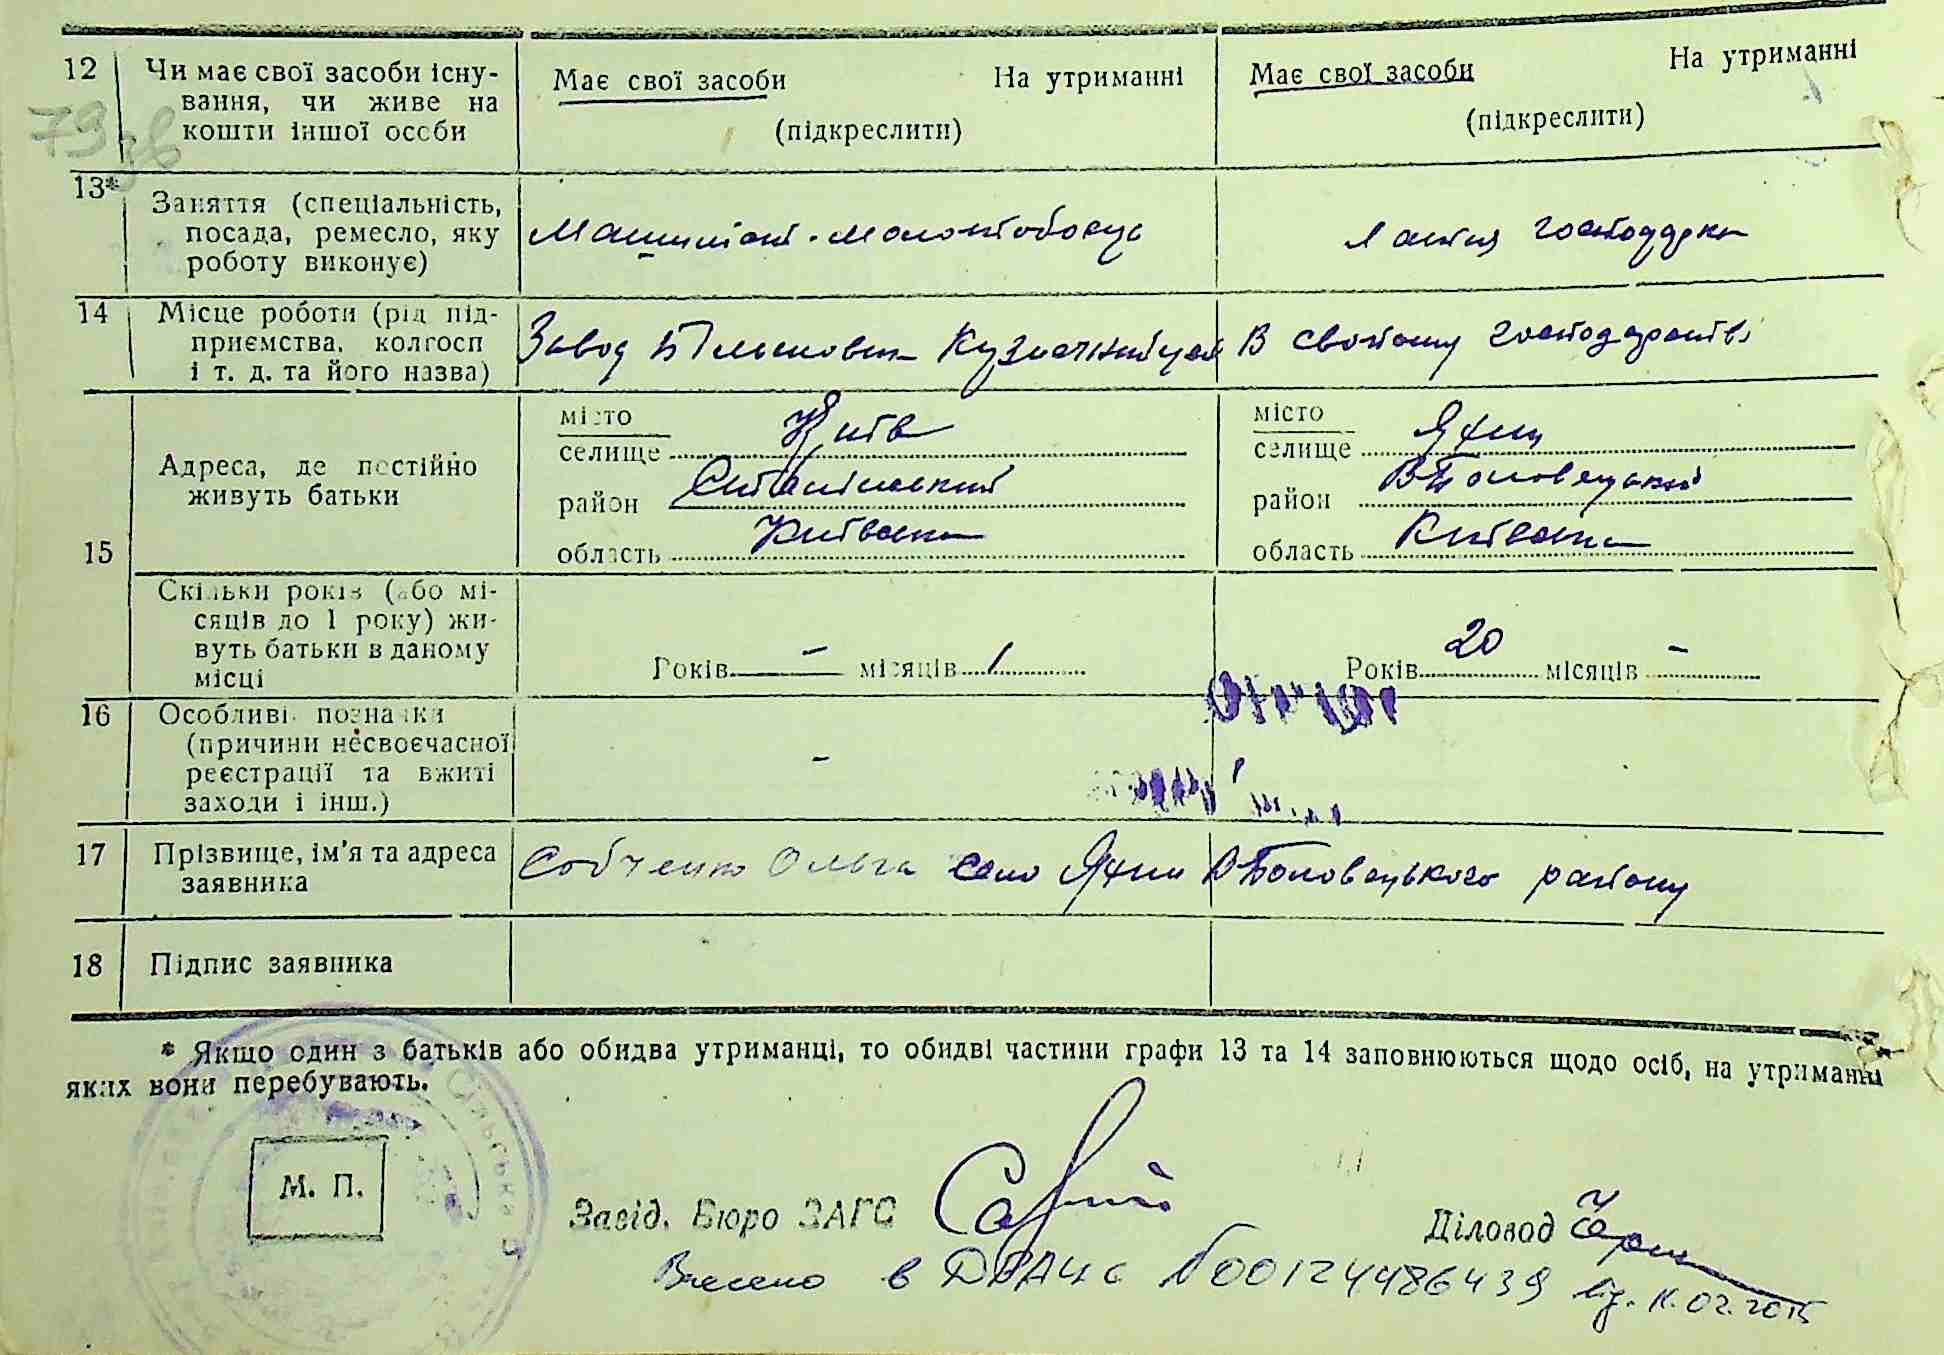 12 Чи має свої засоби існу-
вання, чи живе на
кошти іншої особи
Має свої засоби На утриманні
(підкреслити)
Має свої засоби На утриманні
(підкреслити)
79 зв
13* Заняття (спеціальність,
посада, ремесло, яку
роботу виконує)
Машиніст-молотобоєць
господарка
14 Місце роботи (рід під-
приємства, колгосп
і т. д. та його назва)
Завод Більшовик
В своєму господарстві
15 Адреса, де постійно
живуть батьки
місто
селище Київ
район
область Київська
місто
селище Яхни
район В-Половецький
область Київська
Скільки років (або мі-
сяців до 1 року) жи-
вуть батьки в даному
місці
Років - місяців 1
Років 20 місяців -
16 Особливі позначки
(причини несвоєчасної
реєстрації та вжиті
заходи і інш.)
-
17 Прізвище, ім'я та адреса
заявника
Собченко Ольга село Яхни В-Половецького району
18 Підпис заявника
* Якщо один з батьків або обидва утриманці, то обидві частини графи 13 та 14 заповнюються щодо осіб, на утриманні
яких вони перебувають.
Сільська
М. П.
Завід. Бюро ЗАГС
Діловод
Внесено в ДРАЦС №00124486439 від